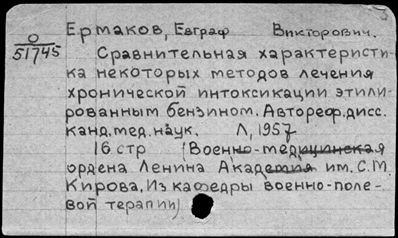 Ермаков, Евграф Викторович.
О
51745
Сравнительная характеристи-
ка некоторых методов лечения
хронической интоксикации этили-
рованным бензином. Автореф. дисс.
канд. мед. наук. Л, 1957
16 стр (Военно-медицинская
ордена Ленина Академия им. С.М.
Кирова, Из кафедры военно-поле-
вой терапии)